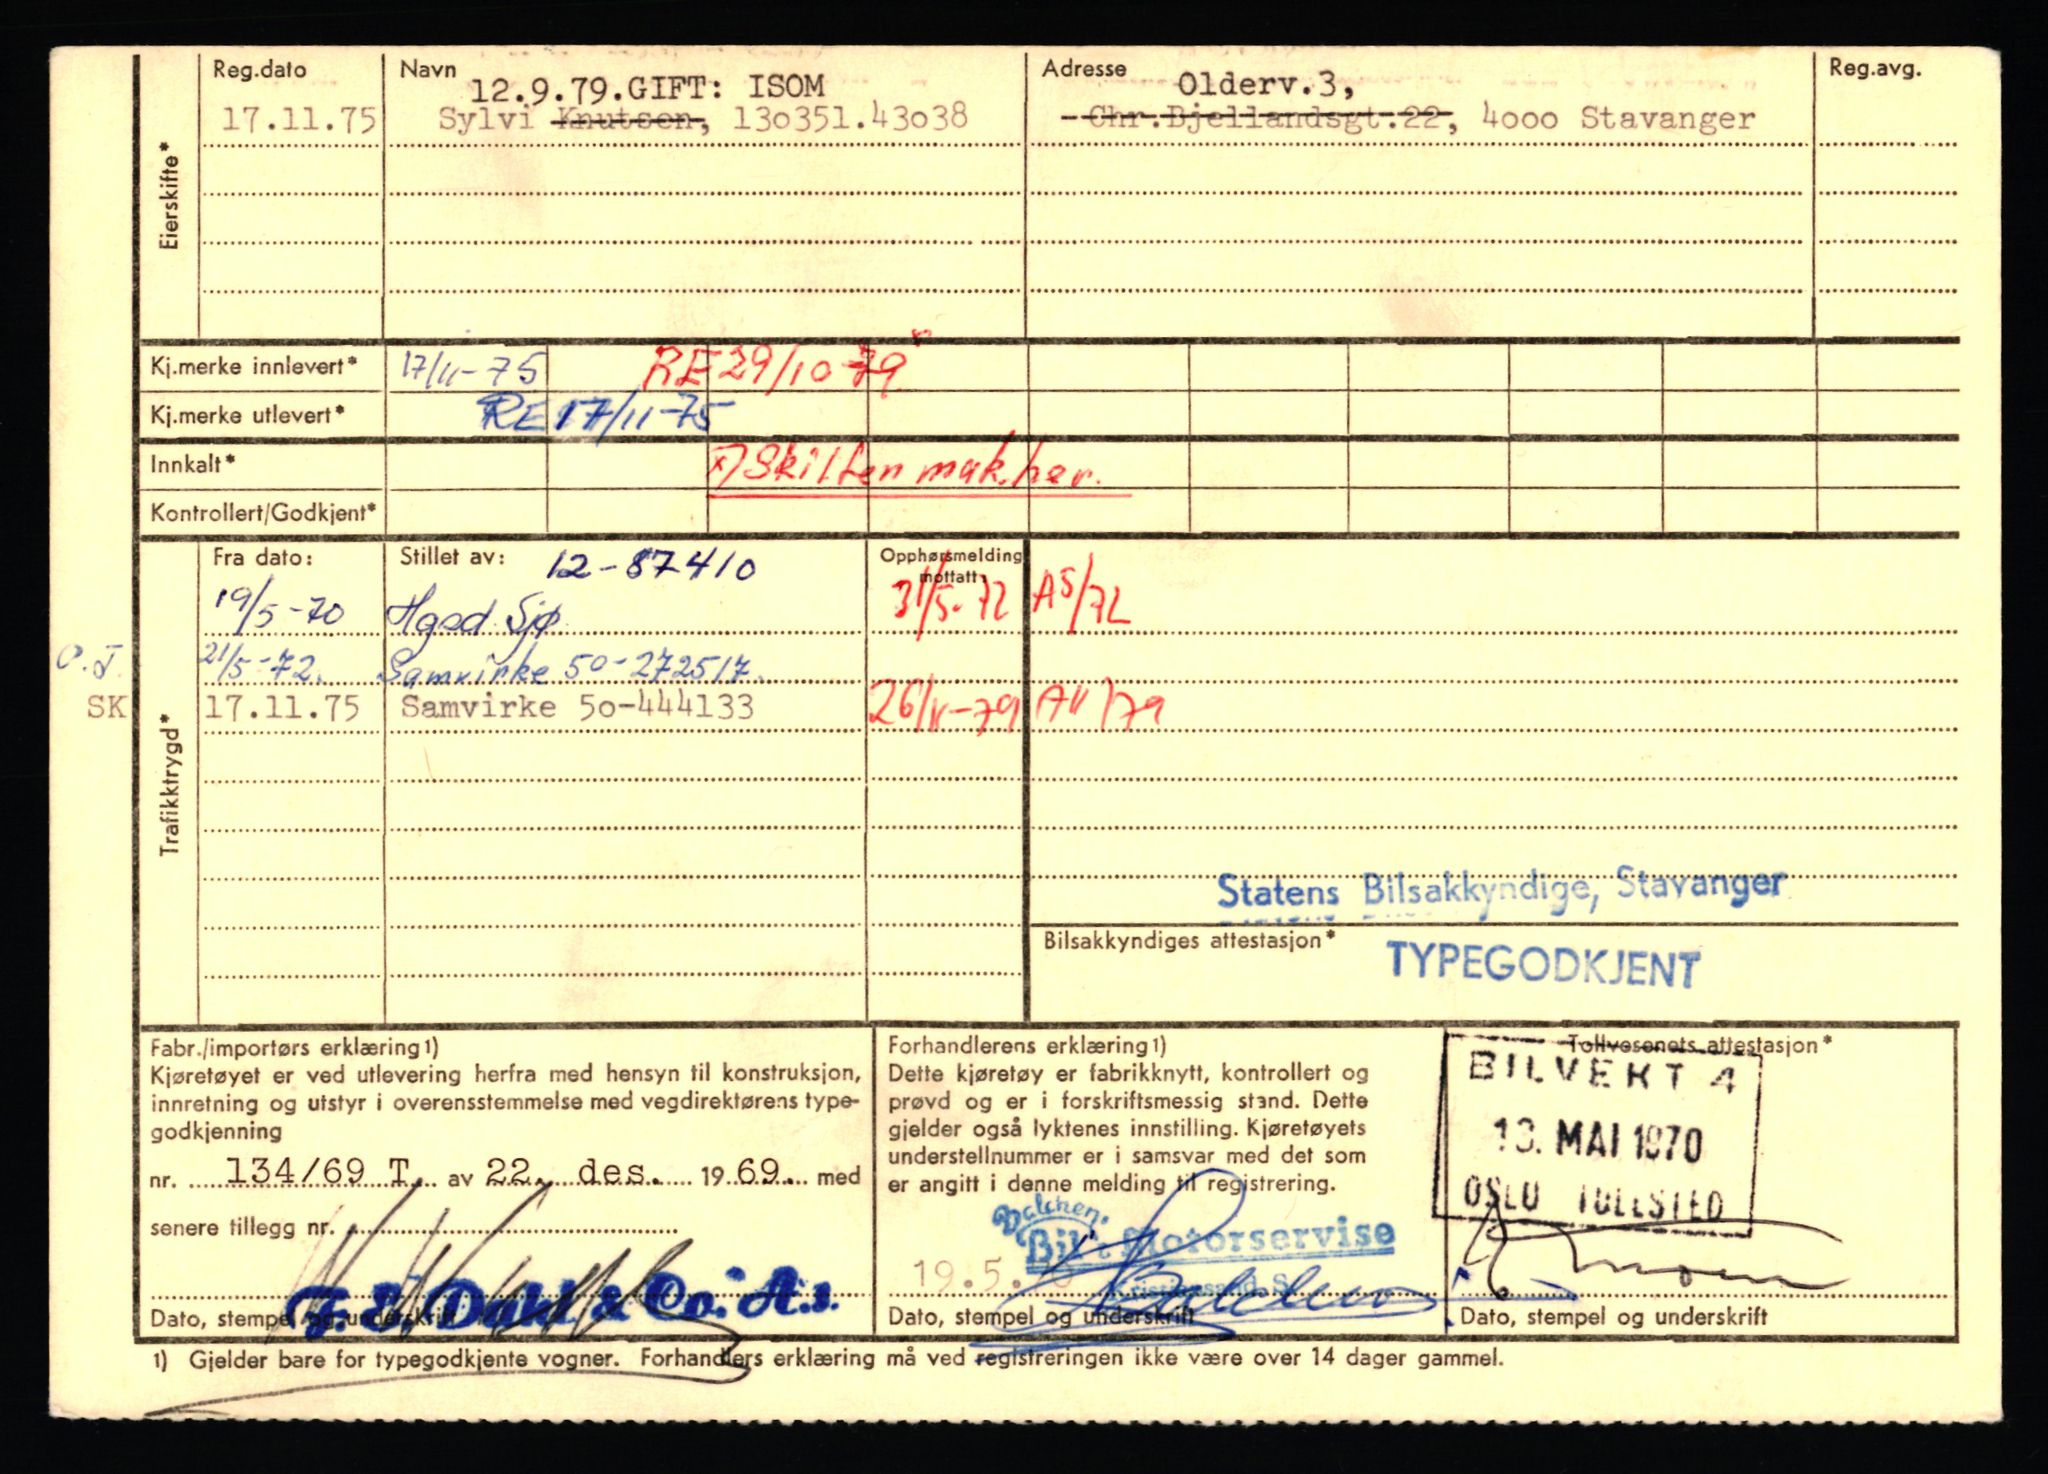 Reg.dato Navn Adresse Reg.avg.
12.9.79.GIFT: ISOM Olderv.3,
17.11.75 Sylvi Knutsen, 13o351.43o38 Chr.Bjellandsgt.22, 4ooo Stavanger
Eierskifte*
Kj.merke innlevert* 17/11-75 RE 29/10-79
Kj.merke utlevert* RE 17/11-75
Innkalt* x) Skilten mak. her.
Kontrollert/Godkjent*
Fra dato: Stillet av: 12-87410 Opphørsmelding mottatt:
19/5-70 Hgsd Sjø 31/5-72 A5/72
O.J. 21/5-72. Samvirke 50-272517.
SK 17.11.75 Samvirke 5o-444133 26/11-79 A11/79
Trafikktrygd*
Statens Bilsakkyndige, Stavanger
Bilsakkyndiges attestasjon* TYPEGODKJENT
Fabr./importørs erklæring1)
Kjøretøyet er ved utlevering herfra med hensyn til konstruksjon,
innretning og utstyr i overensstemmelse med vegdirektørens type-
godkjenning
nr. 134/69 T. av 22. des. 1969. med
senere tillegg nr.
Dahl & Co. A.s.
Dato, stempel og underskrift
Forhandlerens erklæring1)
Dette kjøretøy er fabrikknytt, kontrollert og
prøvd og er i forskriftsmessig stand. Dette
gjelder også lyktenes innstilling. Kjøretøyets
understellnummer er i samsvar med det som
er angitt i denne melding til registrering.
Balchen
Bil & Motorservise
19.5.
Kristiansand S
Dato, stempel og underskrift
Tollvesenets attestasjon*
BILVERT 4
13. MAI 1970
OSLO TOLLSTED
Dato, stempel og underskrift
1) Gjelder bare for typegodkjente vogner. Forhandlers erklæring må ved registreringen ikke være over 14 dager gammel.